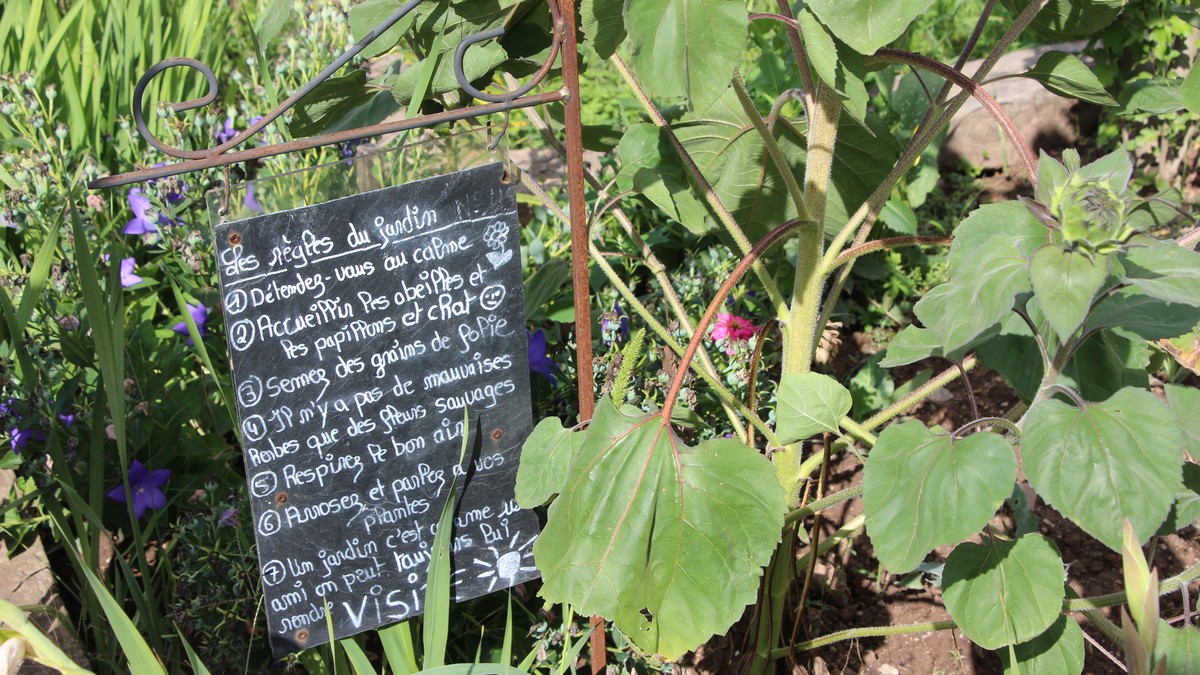 Les règles du jardin
① Détendez-vous au calme
② Accueillir les abeilles et
les papillons et chat
③ Semez des grains de folie
④ Il n'y a pas de mauvaises
herbes que des fleurs sauvages
⑤ Respirez le bon air
⑥ Arrosez et parlez à vos
plantes
⑦ Un jardin c'est comme un
ami on peut toujours lui
rendre VISI